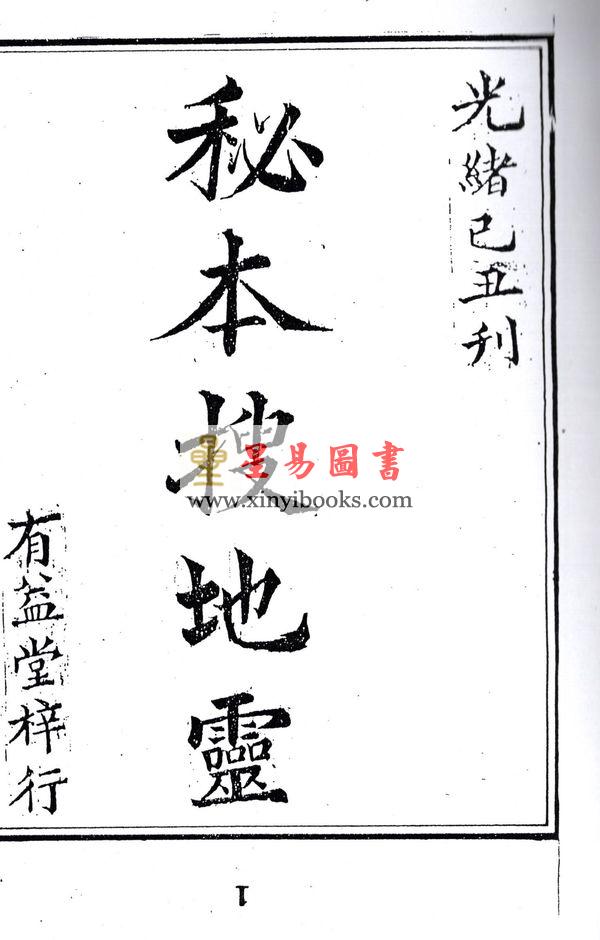 光緒己丑刊
秘本搜地靈
有益堂梓行
星易圖書
www.xinyibooks.com
1